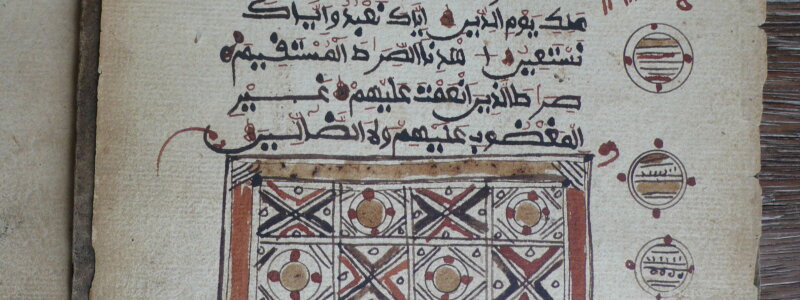 ملك يوم الدين اياك نعبد واياك
نستعين اهدنا الصرط المستقيم
صرط الذين انعمت عليهم غير
المغضوب عليهم ولا الضالين